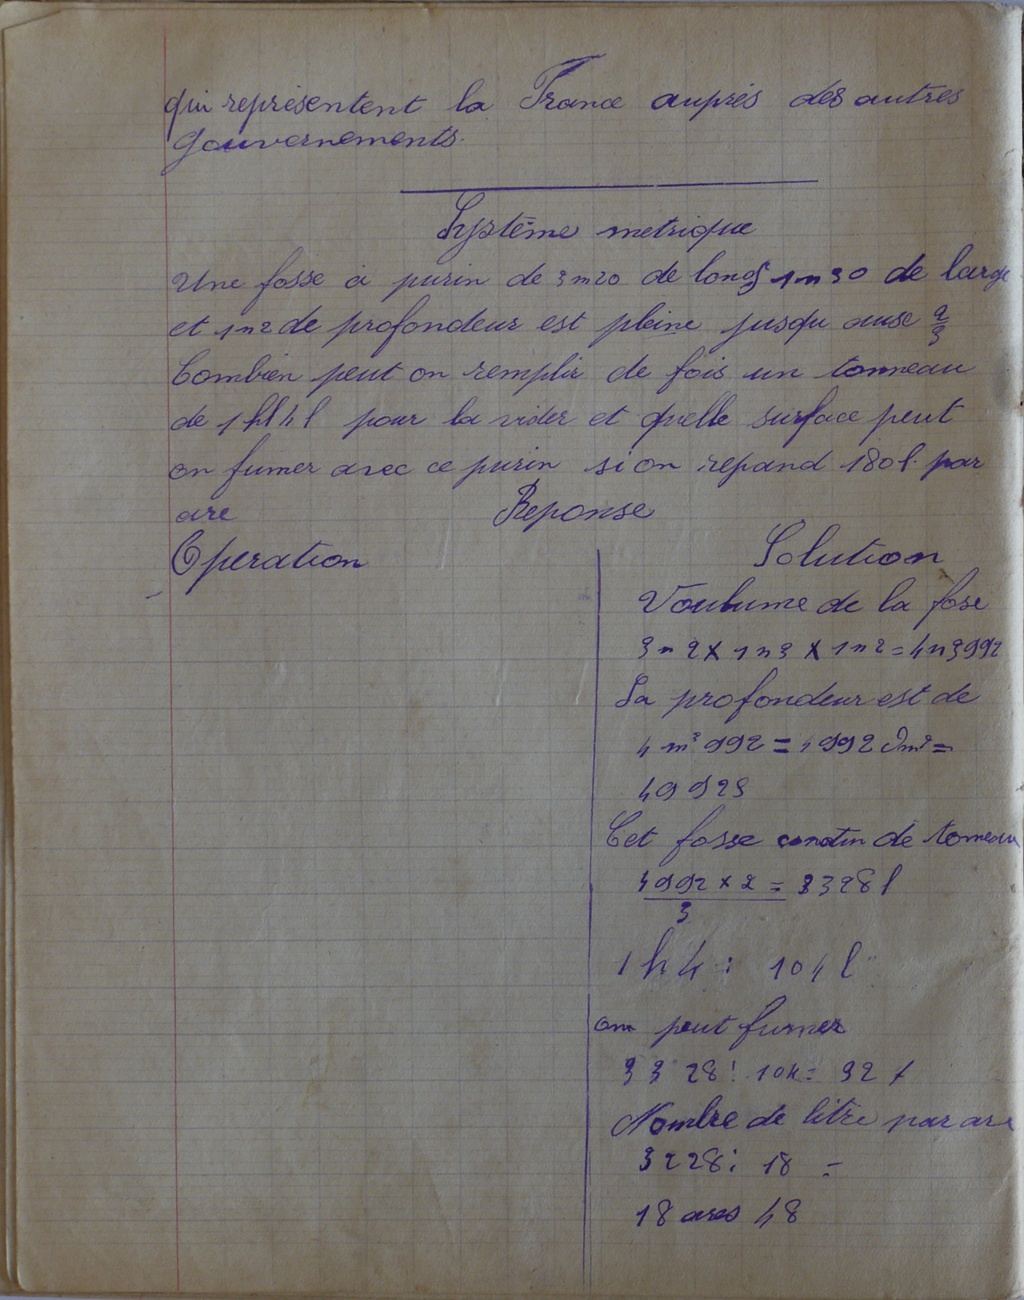 qui représentent la France auprés des autres
gouvernements.
Système metrique
Une fosse à purin de 3m20 de long 1m30 de large
et 1m2 de profondeur est pleine jusqu'ause 2/3
Combien peut on remplir de fois un tonneau
de 1hl4l pour la vider et quelle surface peut
on fumer avec ce purin si on repand 180l. par
are
Reponse
Operation
Solution
Voulume de la fose
3m2 x 1m3 x 1m2 = 4m3992
La profondeur est de
4m³992 = 4992 dm³ =
49923
Cet fosse de toneau
4992 x 2 = 3328l
3
1h4: 104l
on peut fumer
3328: 104= 32 f
Nombre de litre par are
3228: 18 =
18 ares 48